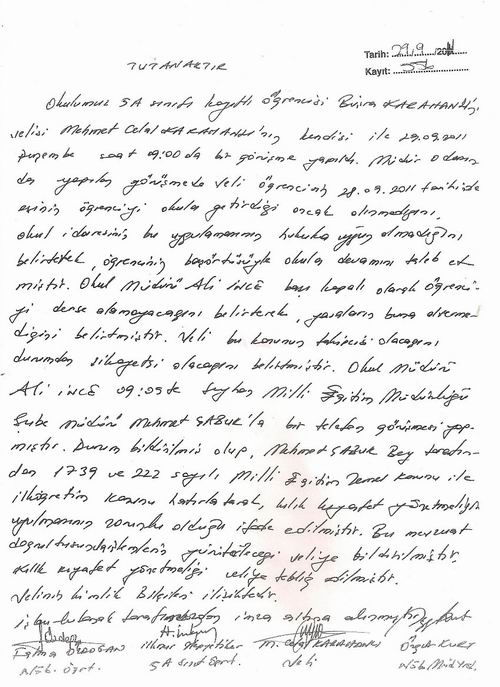 Tarih: 29.9./2011
Kayıt: 556
TUTANAKTIR
Okulumuz 5A sınıfı kayıtlı öğrencisi Büşra KARAHANLI'nın
velisi Mehmet Celal KARAHANLI'nın kendisi ile 29.09.2011
perşembe saat 09:00 da bir görüşme yapıldı. Müdür odasın
da yapılan görüşmede veli öğrencinin 28.09.2011 tarihinde
eşinin öğrenciyi okula getirdiği ancak alınmadığını,
okul idaresinin bu uygulamanın hukuka uygun olmadığını
belirterek, öğrencinin başörtüsüyle okula devamını talep et
miştir. Okul Müdürü Ali İNCE başı kapalı olarak öğrenci-
yi derse alamayacağını belirterek, yasaların buna izin verme
diğini belirtmiştir. Veli bu konunun takipçisi olacağını
durumdan şikayetçi olacağını belirtmiştir. Okul Müdürü
Ali İNCE 09:05te Seyhan Milli Eğitim Müdürlüğü
Şube Müdürü Mehmet SABUR'la bir telefon görüşmesi yap-
mıştır. Durum bildirilmiş olup, Mehmet SABUR Bey tarafın-
dan 1739 ve 222 sayılı Milli Eğitim Temel Kanunu ile
ilköğretim kanunu hatırlatarak, kılık kıyafet yönetmeliğine
uyulmasının zorunlu olduğu ifade edilmiştir. Bu mevzuat
doğrultusunda işlemlerin yürütüleceği veliye bildirilmiştir.
Kılık kıyafet yönetmeliği veliye tebliğ edilmiştir.
Velinin kimlik bilgileri ilişiktedir.
iş bu tutanak tarafımızdan imza altına alınmıştır.
Fatma ERDOĞAN M. Celal KARAHANLI Özgür KURT
Nöb. Öğrt. 5A Sınıf Öğrt. Veli Nöb. Müd. Yrd.